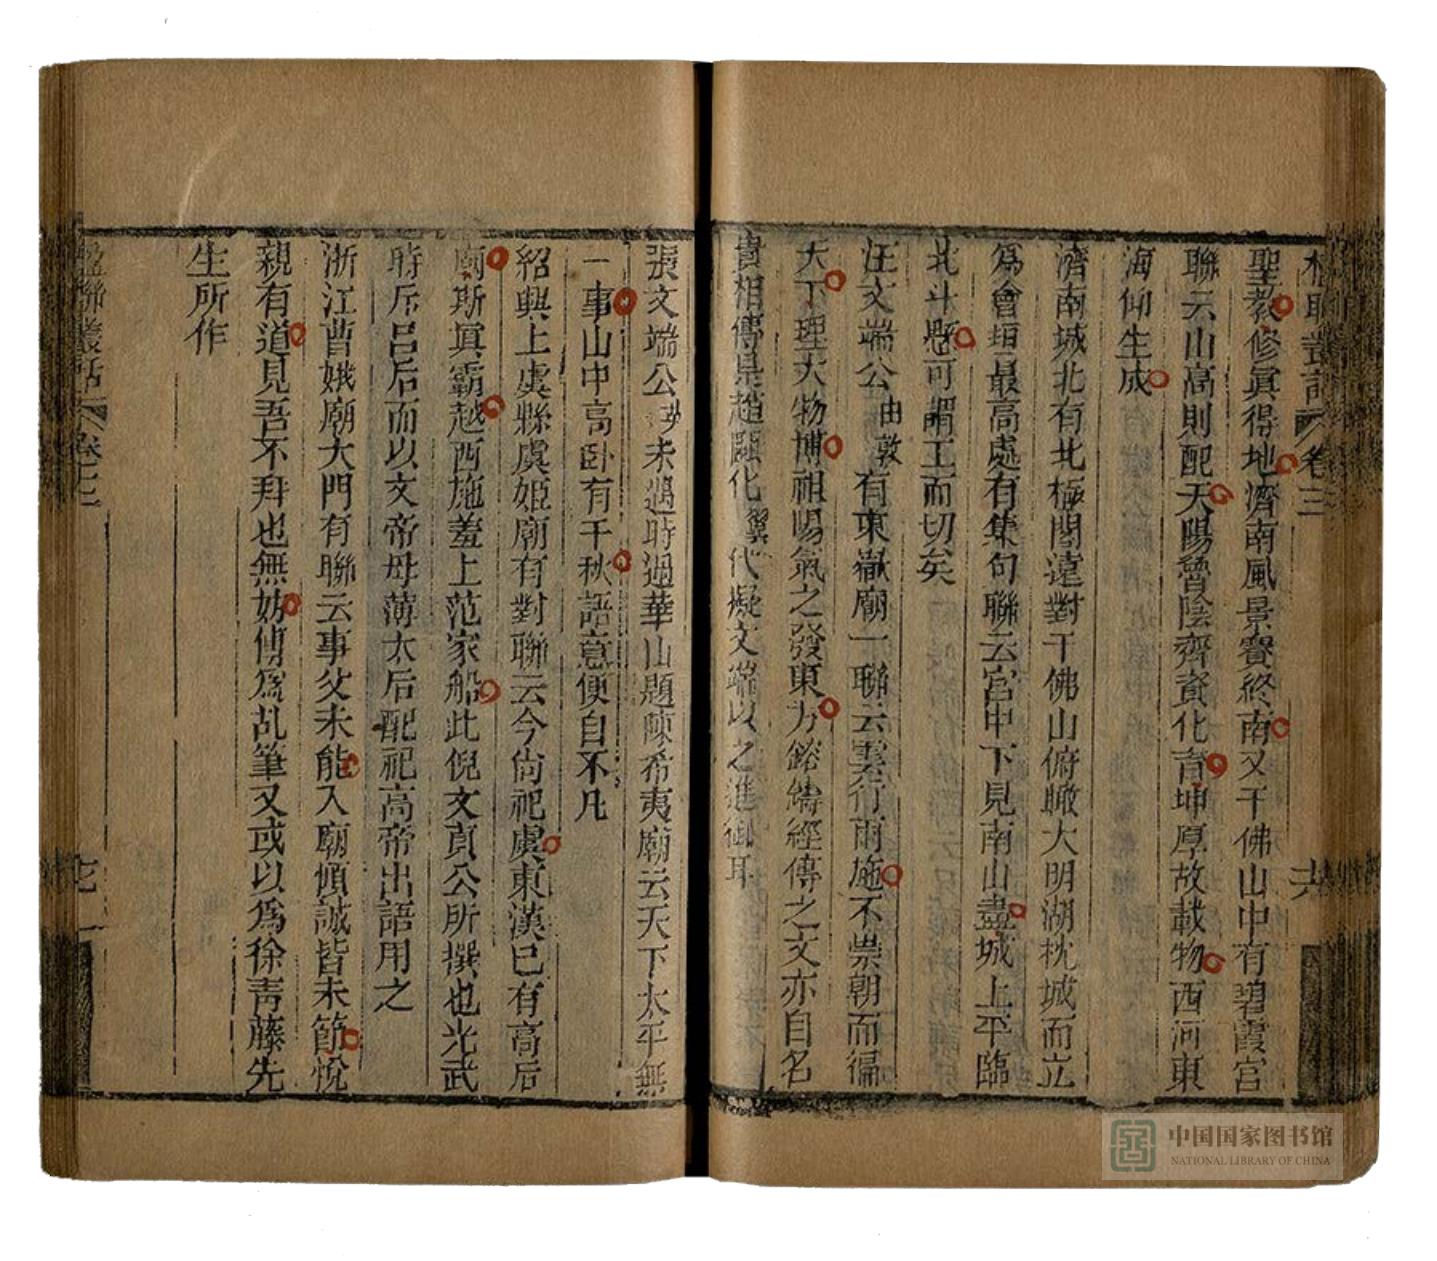 楹聯叢話 卷三 六
聖教修眞得地濟南風景賽終南又千佛山中有碧霞宮
聯云山高則配天陽魯陰齊資化育坤厚故載物西河東
海仰生成
濟南城北有北極閣遠對千佛山俯瞰大明湖枕城而立
爲會垣最高處有集句聯云宮中下見南山盡城上平臨
北斗懸可謂工而切矣
汪文端公由敦有東嶽廟一聯云雲行雨施不崇朝而徧
天下理大物博祖陽氣之發東方鎔鑄經傳之文亦自名
貴相傳是趙甌北翼代擬文端以之進御耳
張文端公英未遇時過華山題陳希夷廟云天下太平無
一事山中高卧有千秋語意便自不凡
紹興上虞縣虞姬廟有對聯云今尙祀虞東漢已有高后
廟斯眞霸越西施羞上范家船此倪文貞公所撰也光武
時斥呂后而以文帝母薄太后配祀高帝出語用之
浙江曹娥廟大門有聯云事父未能入廟傾誠皆未節悅
親有道見吾不拜也無妨傳爲乩筆又或以爲徐靑藤先
生所作
楹聯叢話 卷三 七